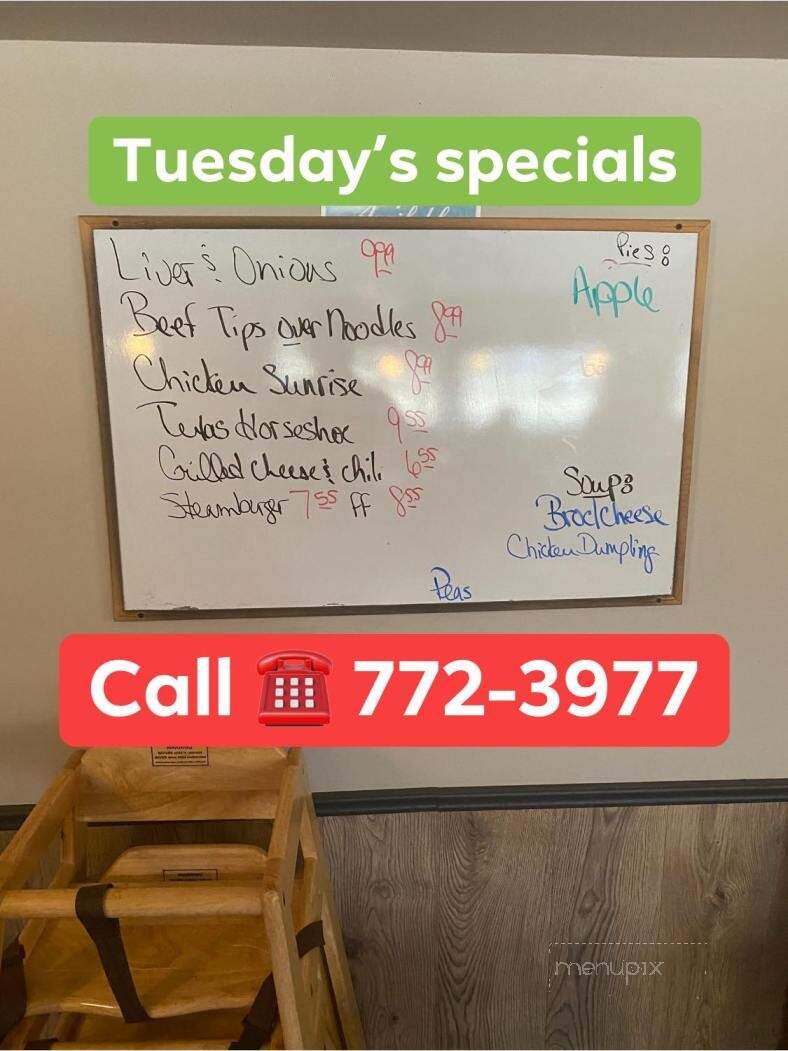 Tuesday's specials
Liver & Onions 9.99
Pies:
Apple
Beef Tips over Noodles 8.99
Chicken Sunrise 8.99
Texas Horseshoe 9.55
Grilled cheese & chili 6.55
Steamburger 7.55 ff 8.55
Soups
Brocl Cheese
Chicken Dumpling
Peas
Call ☎ 772-3977
menupix